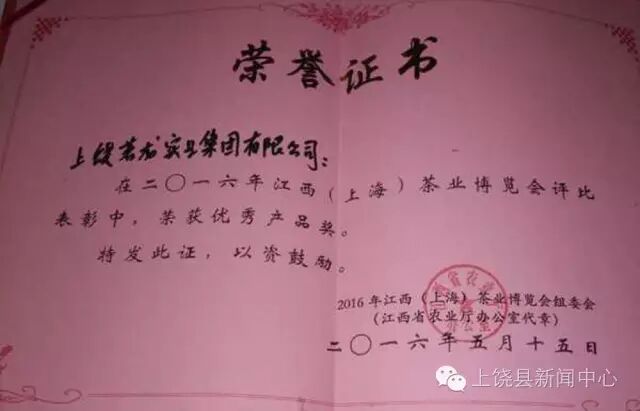 荣誉证书
上饶茗龙实业集团有限公司：
在二〇一六年江西（上海）茶业博览会评比
表彰中，荣获优秀产品奖。
特发此证，以资鼓励。
2016年江西（上海）茶业博览会组委会
（江西省农业厅办公室代章）
二〇一六年五月十五日
上饶县新闻中心